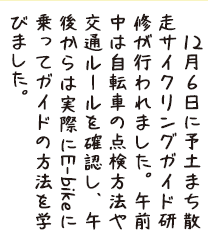 12月6日に予土まち散
走サイクリングガイド研
修が行われました。午前
中は自転車の点検方法や
交通ルールを確認し、午
後からは実際にE-bikeに
乗ってガイドの方法を学
びました。